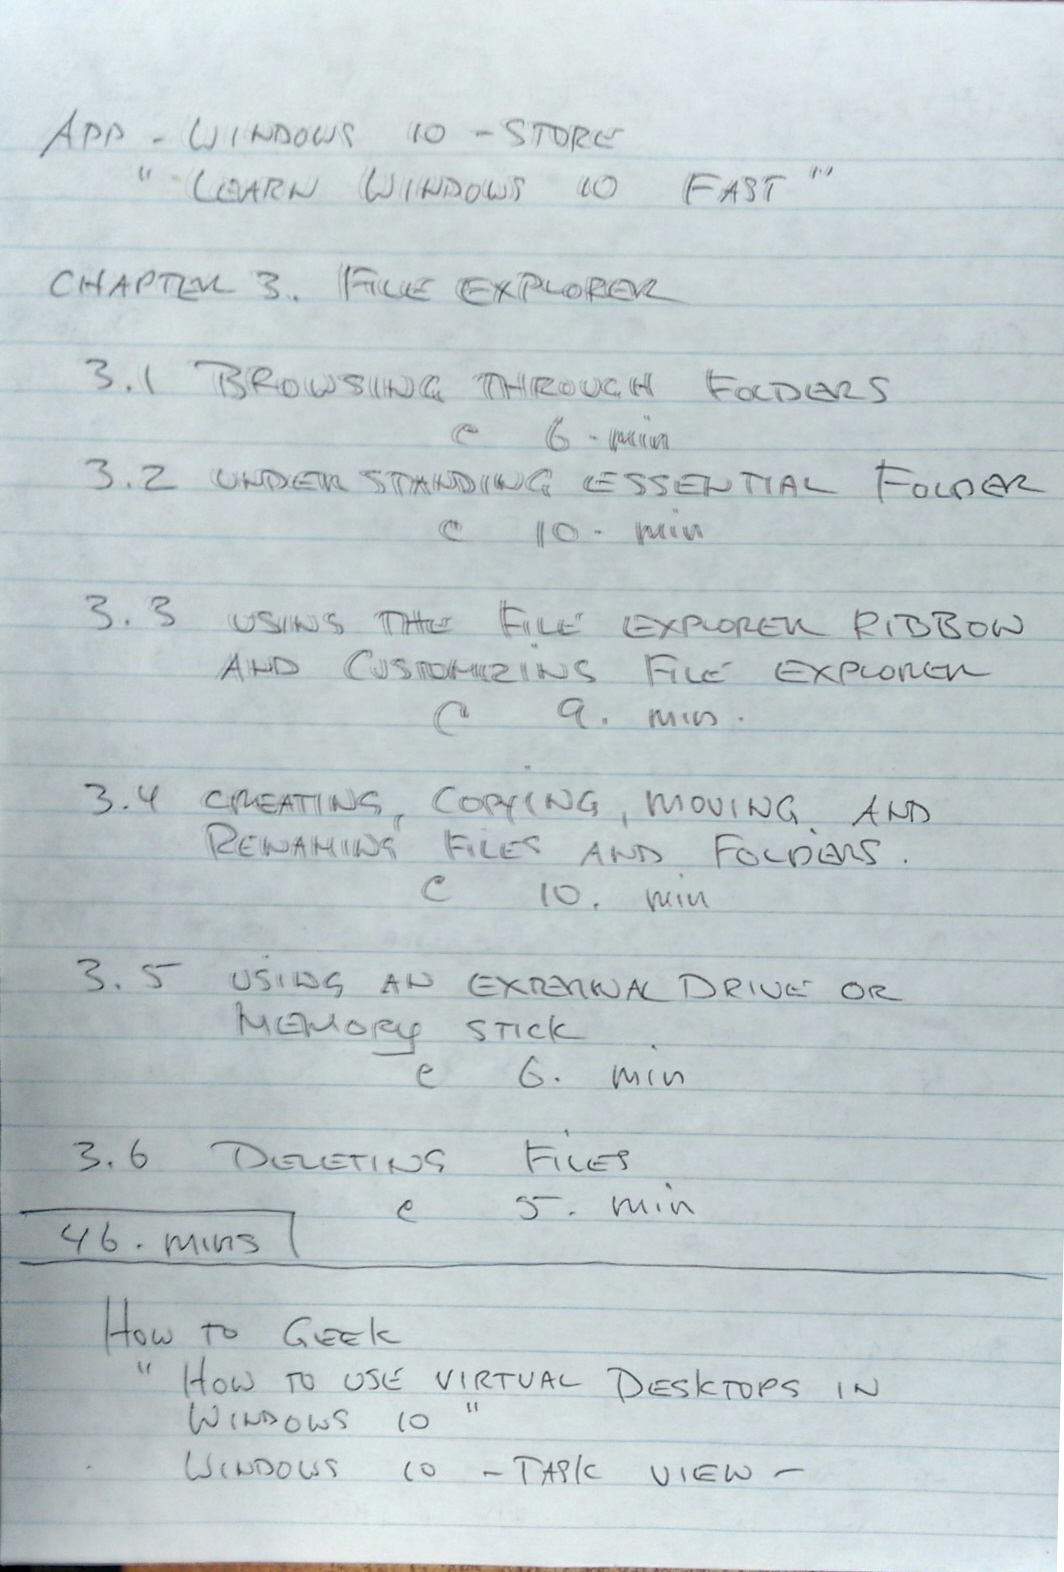 APP - WINDOWS 10 - STORE
" LEARN WINDOWS 10 FAST "
CHAPTER 3. FILE EXPLORER
3.1 BROWSING THROUGH FOLDERS
@ 6 - min
3.2 UNDERSTANDING ESSENTIAL FOLDER
@ 10 - min
3.3 USING THE FILE EXPLORER RIBBOW
AND CUSTOMIZING FILE EXPLORER
@ 9. min.
3.4 CREATING, COPYING, MOVING AND
RENAMING FILES AND FOLDERS.
@ 10. min
3.5 USING AN EXTERNAL DRIVE OR
MEMORY STICK
@ 6. min
3.6 DELETING FILES
@ 5. min
46. mins
HOW TO GEEK
" HOW TO USE VIRTUAL DESKTOPS IN
WINDOWS 10 "
WINDOWS 10 - TASK VIEW -